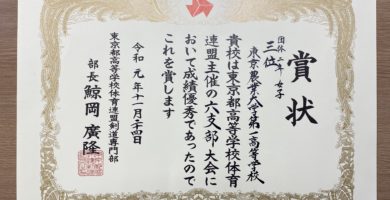 賞状
団体二年女子
三位
東京農業大学第一高等学校
貴校は東京都高等学校体育
連盟主催の六支部大会に
おいて成績優秀であったので
これを賞します
令和元年十一月二十四日
東京都高等学校体育連盟剣道専門部
部長 鯨岡廣隆